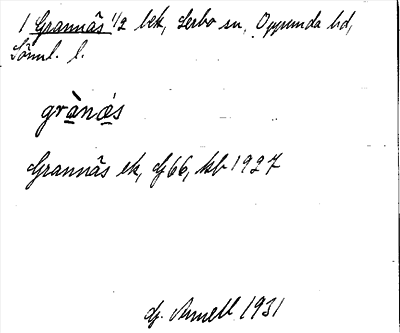 1 Grannäs 1/2 bek, Lerbo sn, Oppunda hd,
Söml. l.
grànǝs
Grannäs ek, df 66, kb 1927
df. Arnell 1931